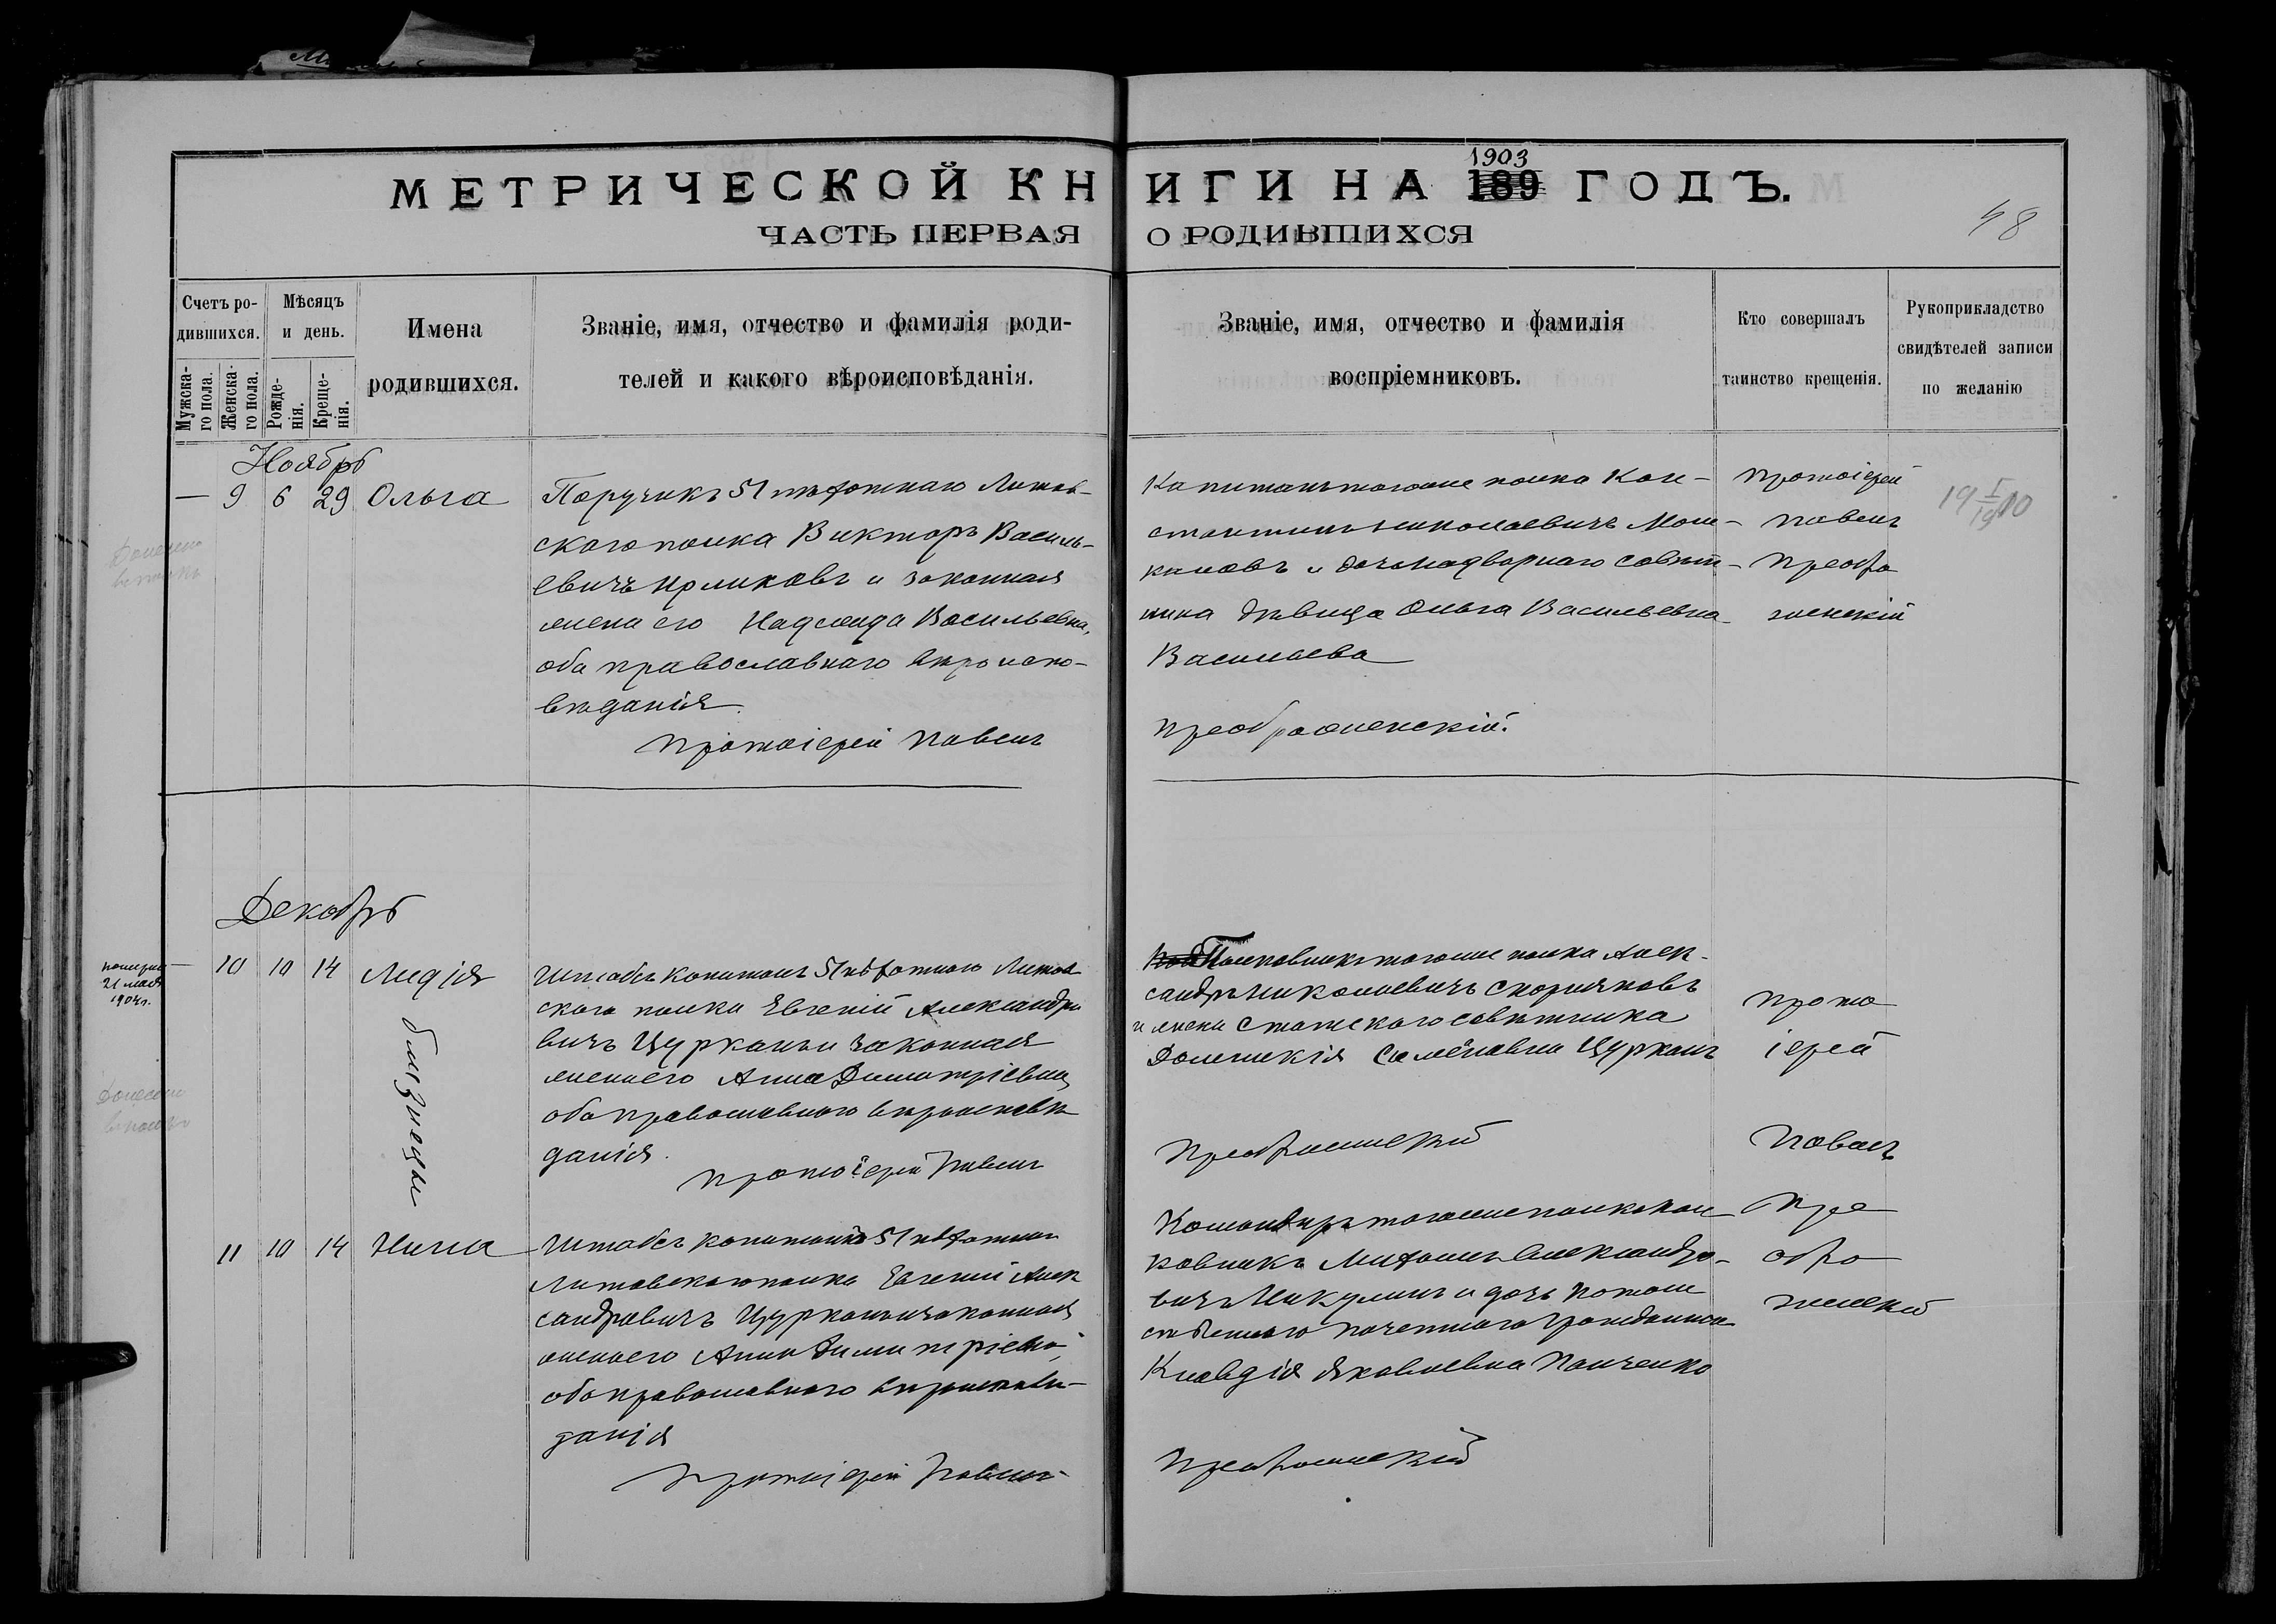 МЕТРИЧЕСКОЙ КНИГИ НА 1903 189 ГОДЪ.
ЧАСТЬ ПЕРВАЯ О РОДИВШИХСЯ
48
Счетъ ро-
дившихся.
Мужска-
го пола.
Женска-
го пола.
Мѣсяцъ
и день.
Рожде-
нія.
Креще-
нія.
Имена
родившихся.
Званіе, имя, отчество и фамилія роди-
телей и какого вѣроисповѣданія.
Званіе, имя, отчество и фамилія
воспріемниковъ.
Кто совершалъ
таинство крещенія.
Рукоприкладство
свидѣтелей записи
по желанію
Ноябрь
— 9 6 29 Ольга
Поручикъ 51 пѣхотнаго Литов-
скаго полка Викторъ Василь-
евичъ и законная
жена его Надежда Васильевна,
оба православнаго вѣроиспо-
вѣданія.
Протоіерей Павелъ
Капитанъ того же полка Кон-
стантинъ Николаевичъ
и дочь Надворнаго Совѣт-
ника дѣвица Ольга Васильевна
Васильева
Преображенскій.
Протоіерей
Павелъ
Преобра
женскій
Декабрь
померла
21 мая
1904 г.
— 10 10 14 Лидія
близнецы
Штабсъ Капитанъ 51 пѣхотнаго Литов
скаго полка Евгеній Александро
вичъ Цурканъ и законная
жена его Анна Димитріевна,
оба православнаго вѣроисповѣ
данія.
Протоіерей Павелъ
Полковникъ того же полка Алек-
сандръ Николаевичъ Скоряковъ
и жена Статскаго совѣтника
Семёновна Цурканъ
Преображенскій
Прото
іерей
Павелъ
Пре
обра
женскій
11 10 14 Нина
Штабсъ капитанъ 51 пѣхотнаго
Литовскаго полка Евгеній Алек
сандровичъ Цурканъ и законная
жена его Анна Димитріевна,
оба православнаго вѣроисповѣ-
данія
Протоіерей Павелъ
Командиръ того же полка Пол
ковникъ Александро-
вичъ Микулинъ и дочь Потом
ственнаго почетнаго гражданина
Клавдія Яковлевна Панченко
Преображенскій